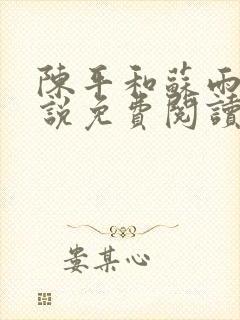 陳平和蘇雨
說免費閱讀
婁某心